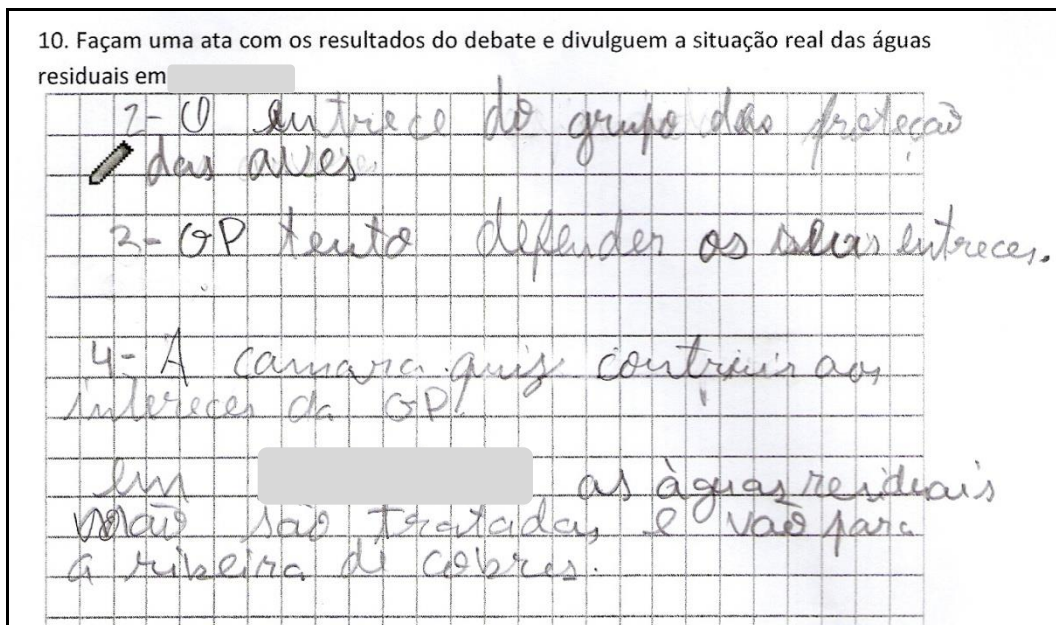 10. Façam uma ata com os resultados do debate e divulguem a situação real das águas
residuais em
2-O entrece do grupo das proteção
das aves
3-GP tento defender os seus entreces.
4-A camara quiz contriuir aos
intereces da GP.
em as àguas residuais
não são tratadas e vão para
a ribeira de cobres.